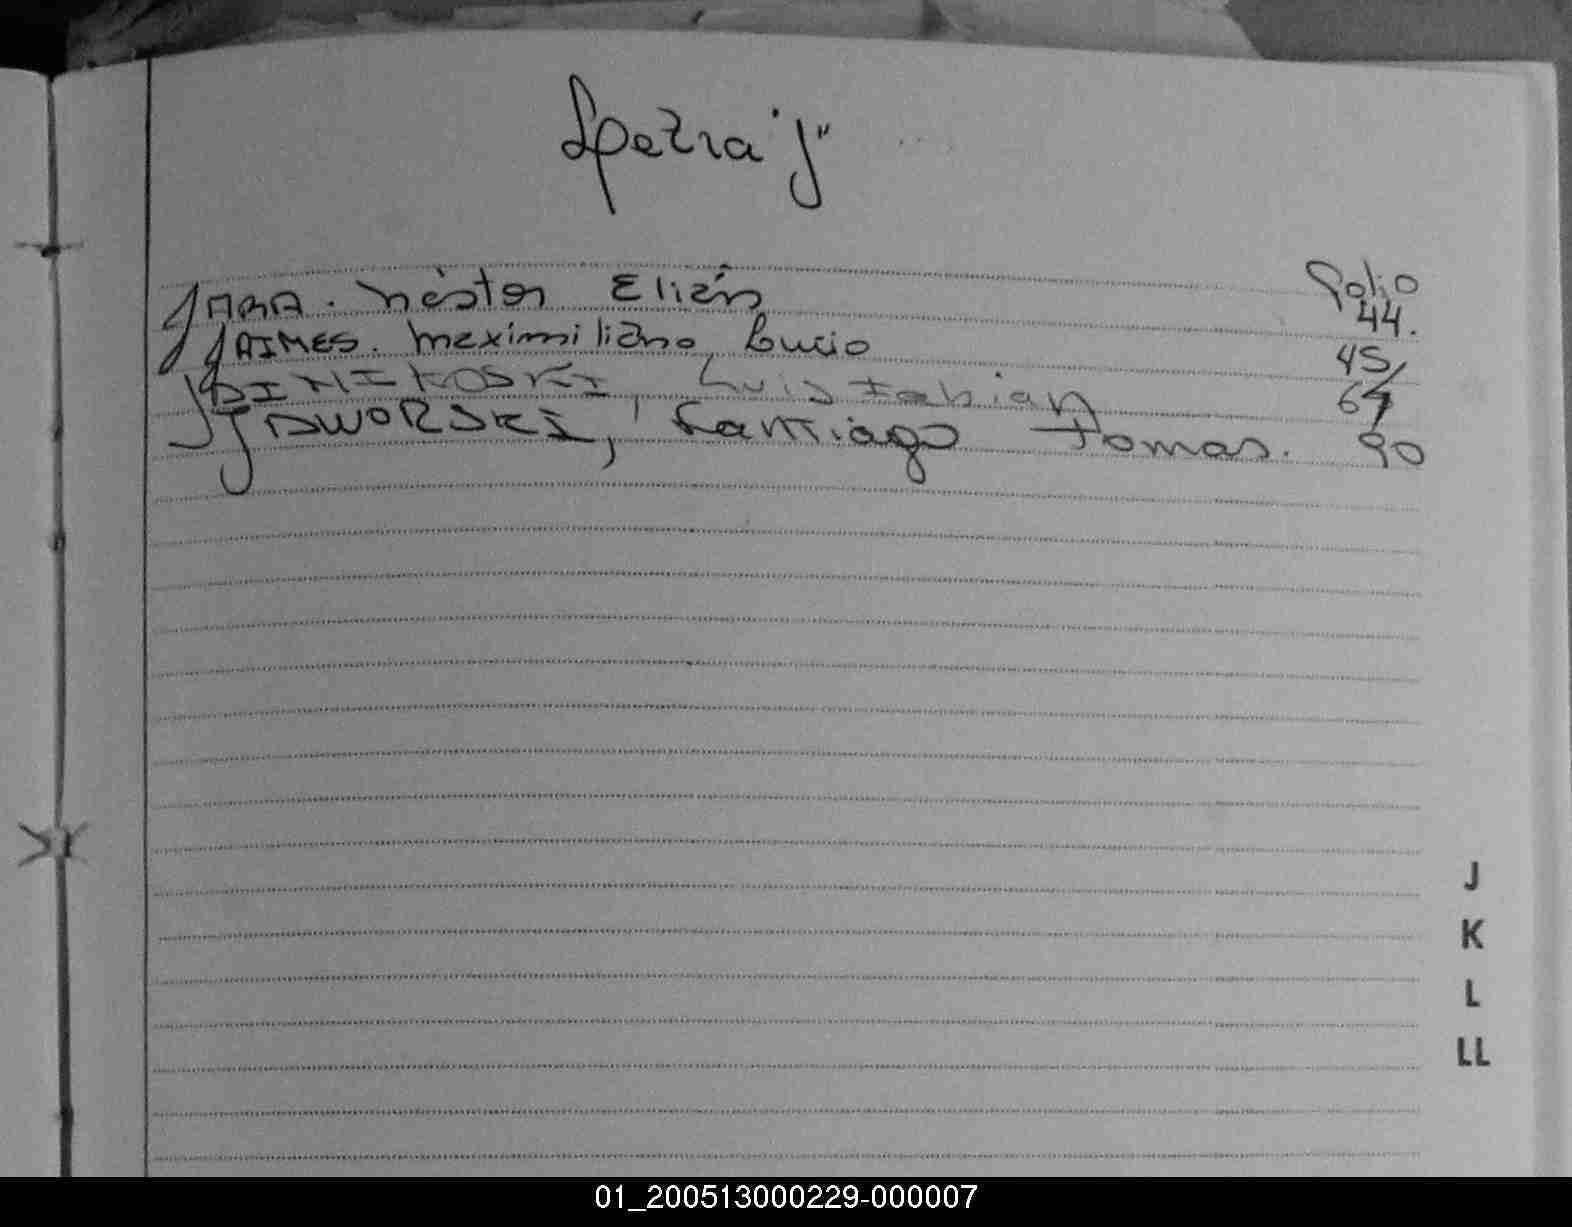 Letra "J"
Folio
JARA. Néstor Elián 44.
JAIMES. Maximiliano Lucio 45
Luis Fabian 67
JAWORSKI, Santiago Tomas. 90
J
K
L
LL
01_200513000229-000007